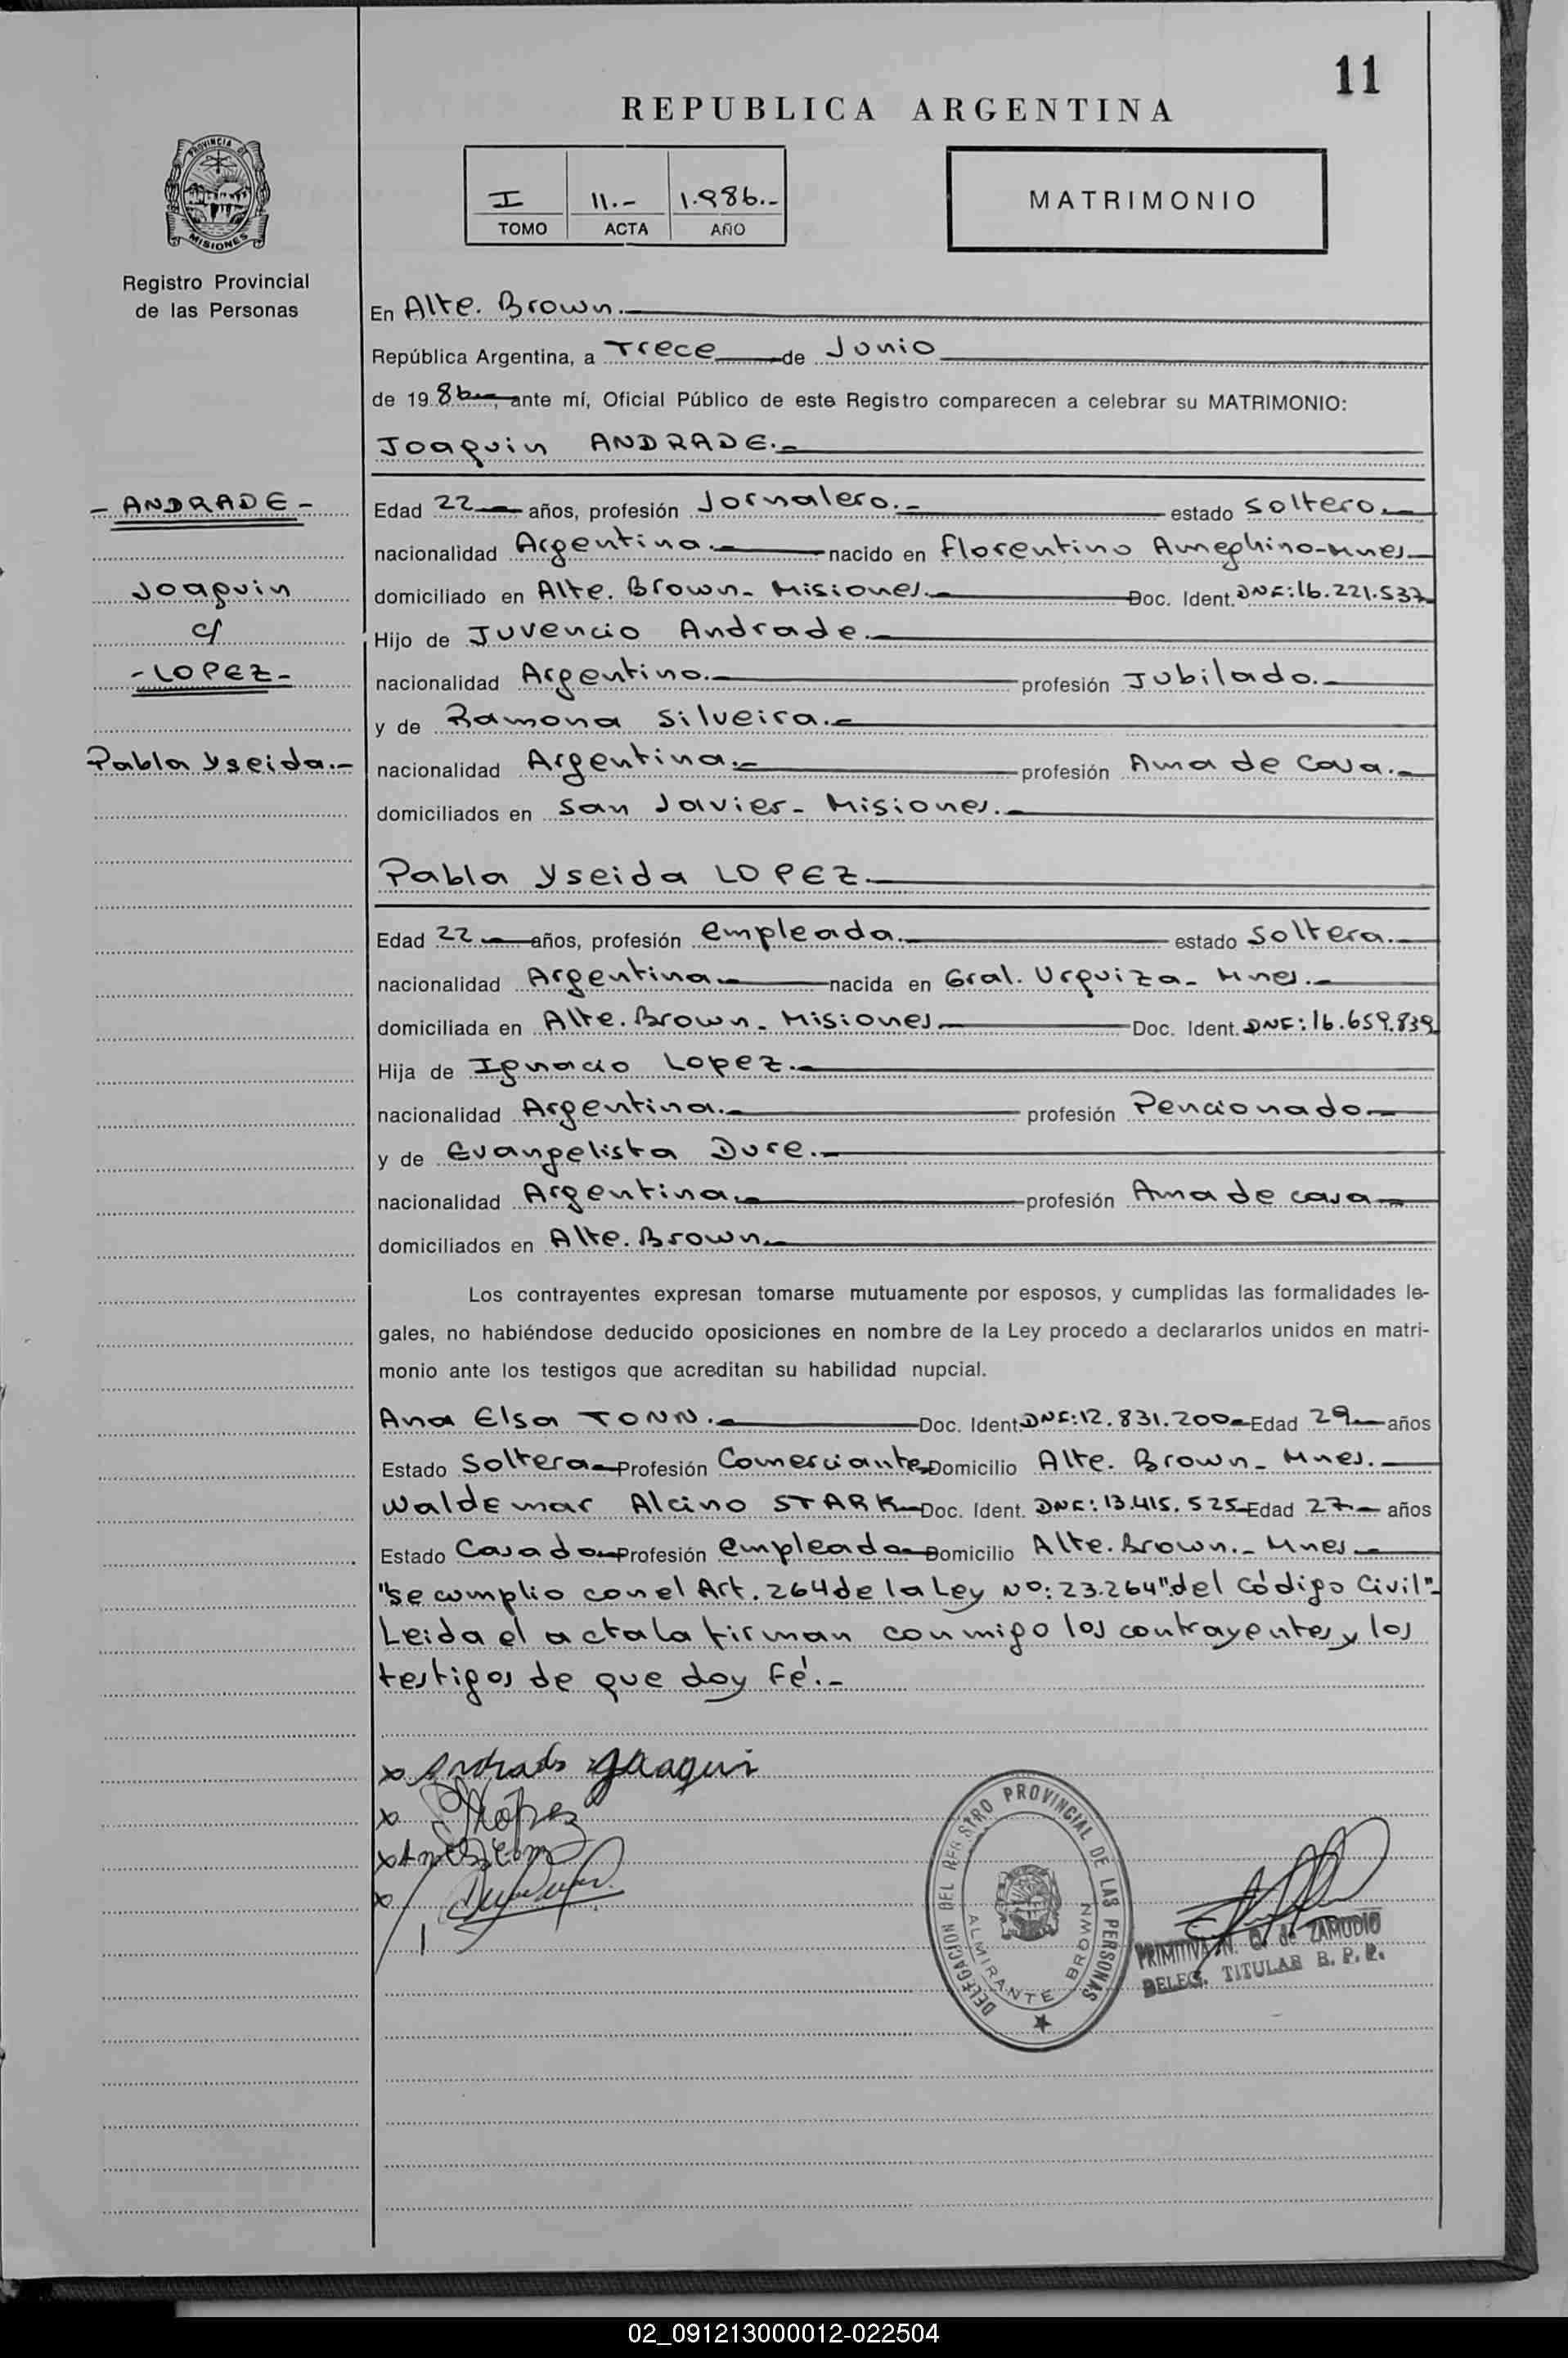 11
REPUBLICA ARGENTINA
PROVINCIA DE
MISIONES
Registro Provincial
de las Personas
I 11.- 1.986.-
TOMO ACTA AÑO
MATRIMONIO
En Alte. Brown.
República Argentina, a Trece de Junio
de 1986, ante mí, Oficial Público de este Registro comparecen a celebrar su MATRIMONIO:
Joaquin ANDRADE.-
- ANDRADE -
Joaquin
c/
- LOPEZ -
Pabla Yseida.-
Edad 22 años, profesión Jornalero.- estado Soltero.
nacionalidad Argentina.- nacido en Florentino Ameghino-Mnes
domiciliado en Alte. Brown- Misiones.- Doc. Ident. DNI:16.221.537
Hijo de Juvencio Andrade.-
nacionalidad Argentino.- profesión Jubilado.-
y de Ramona Silveira.-
nacionalidad Argentina.- profesión Ama de Casa.-
domiciliados en San Javier- Misiones.-
Pabla Yseida LOPEZ.
Edad 22 años, profesión empleada.- estado Soltera.-
nacionalidad Argentina nacida en Gral. Urquiza- Mnes.-
domiciliada en Alte. Brown- Misiones Doc. Ident. DNI:16.659.839
Hija de Ignacio Lopez.-
nacionalidad Argentina.- profesión Pencionado
y de Evangelista Dure.-
nacionalidad Argentina.- profesión Ama de casa
domiciliados en Alte. Brown.
Los contrayentes expresan tomarse mutuamente por esposos, y cumplidas las formalidades le-
gales, no habiéndose deducido oposiciones en nombre de la Ley procedo a declararlos unidos en matri-
monio ante los testigos que acreditan su habilidad nupcial.
Ana Elsa TONN.- Doc. Ident. DNI:12.831.200 Edad 29 años
Estado Soltera Profesión Comerciante Domicilio Alte. Brown- Mnes.-
Waldemar Alcino STARK Doc. Ident. DNI:13.415.525 Edad 27.- años
Estado Casado Profesión empleado Domicilio Alte. Brown.- Mnes
"Se cumplio con el Art. 264 de la Ley Nº: 23.264" del Código Civil"-
Leida el acta la firman conmigo los contrayentes y los
testigos de que doy Fé.-
x Andrade Joaqui
x López
x
x
DELEGACION DEL REGISTRO PROVINCIAL DE LAS PERSONAS
ALMIRANTE BROWN
PRIMITIVA N. Q. de ZAMUDIO
DELEG. TITULAR R. P. P.
02_091213000012-022504